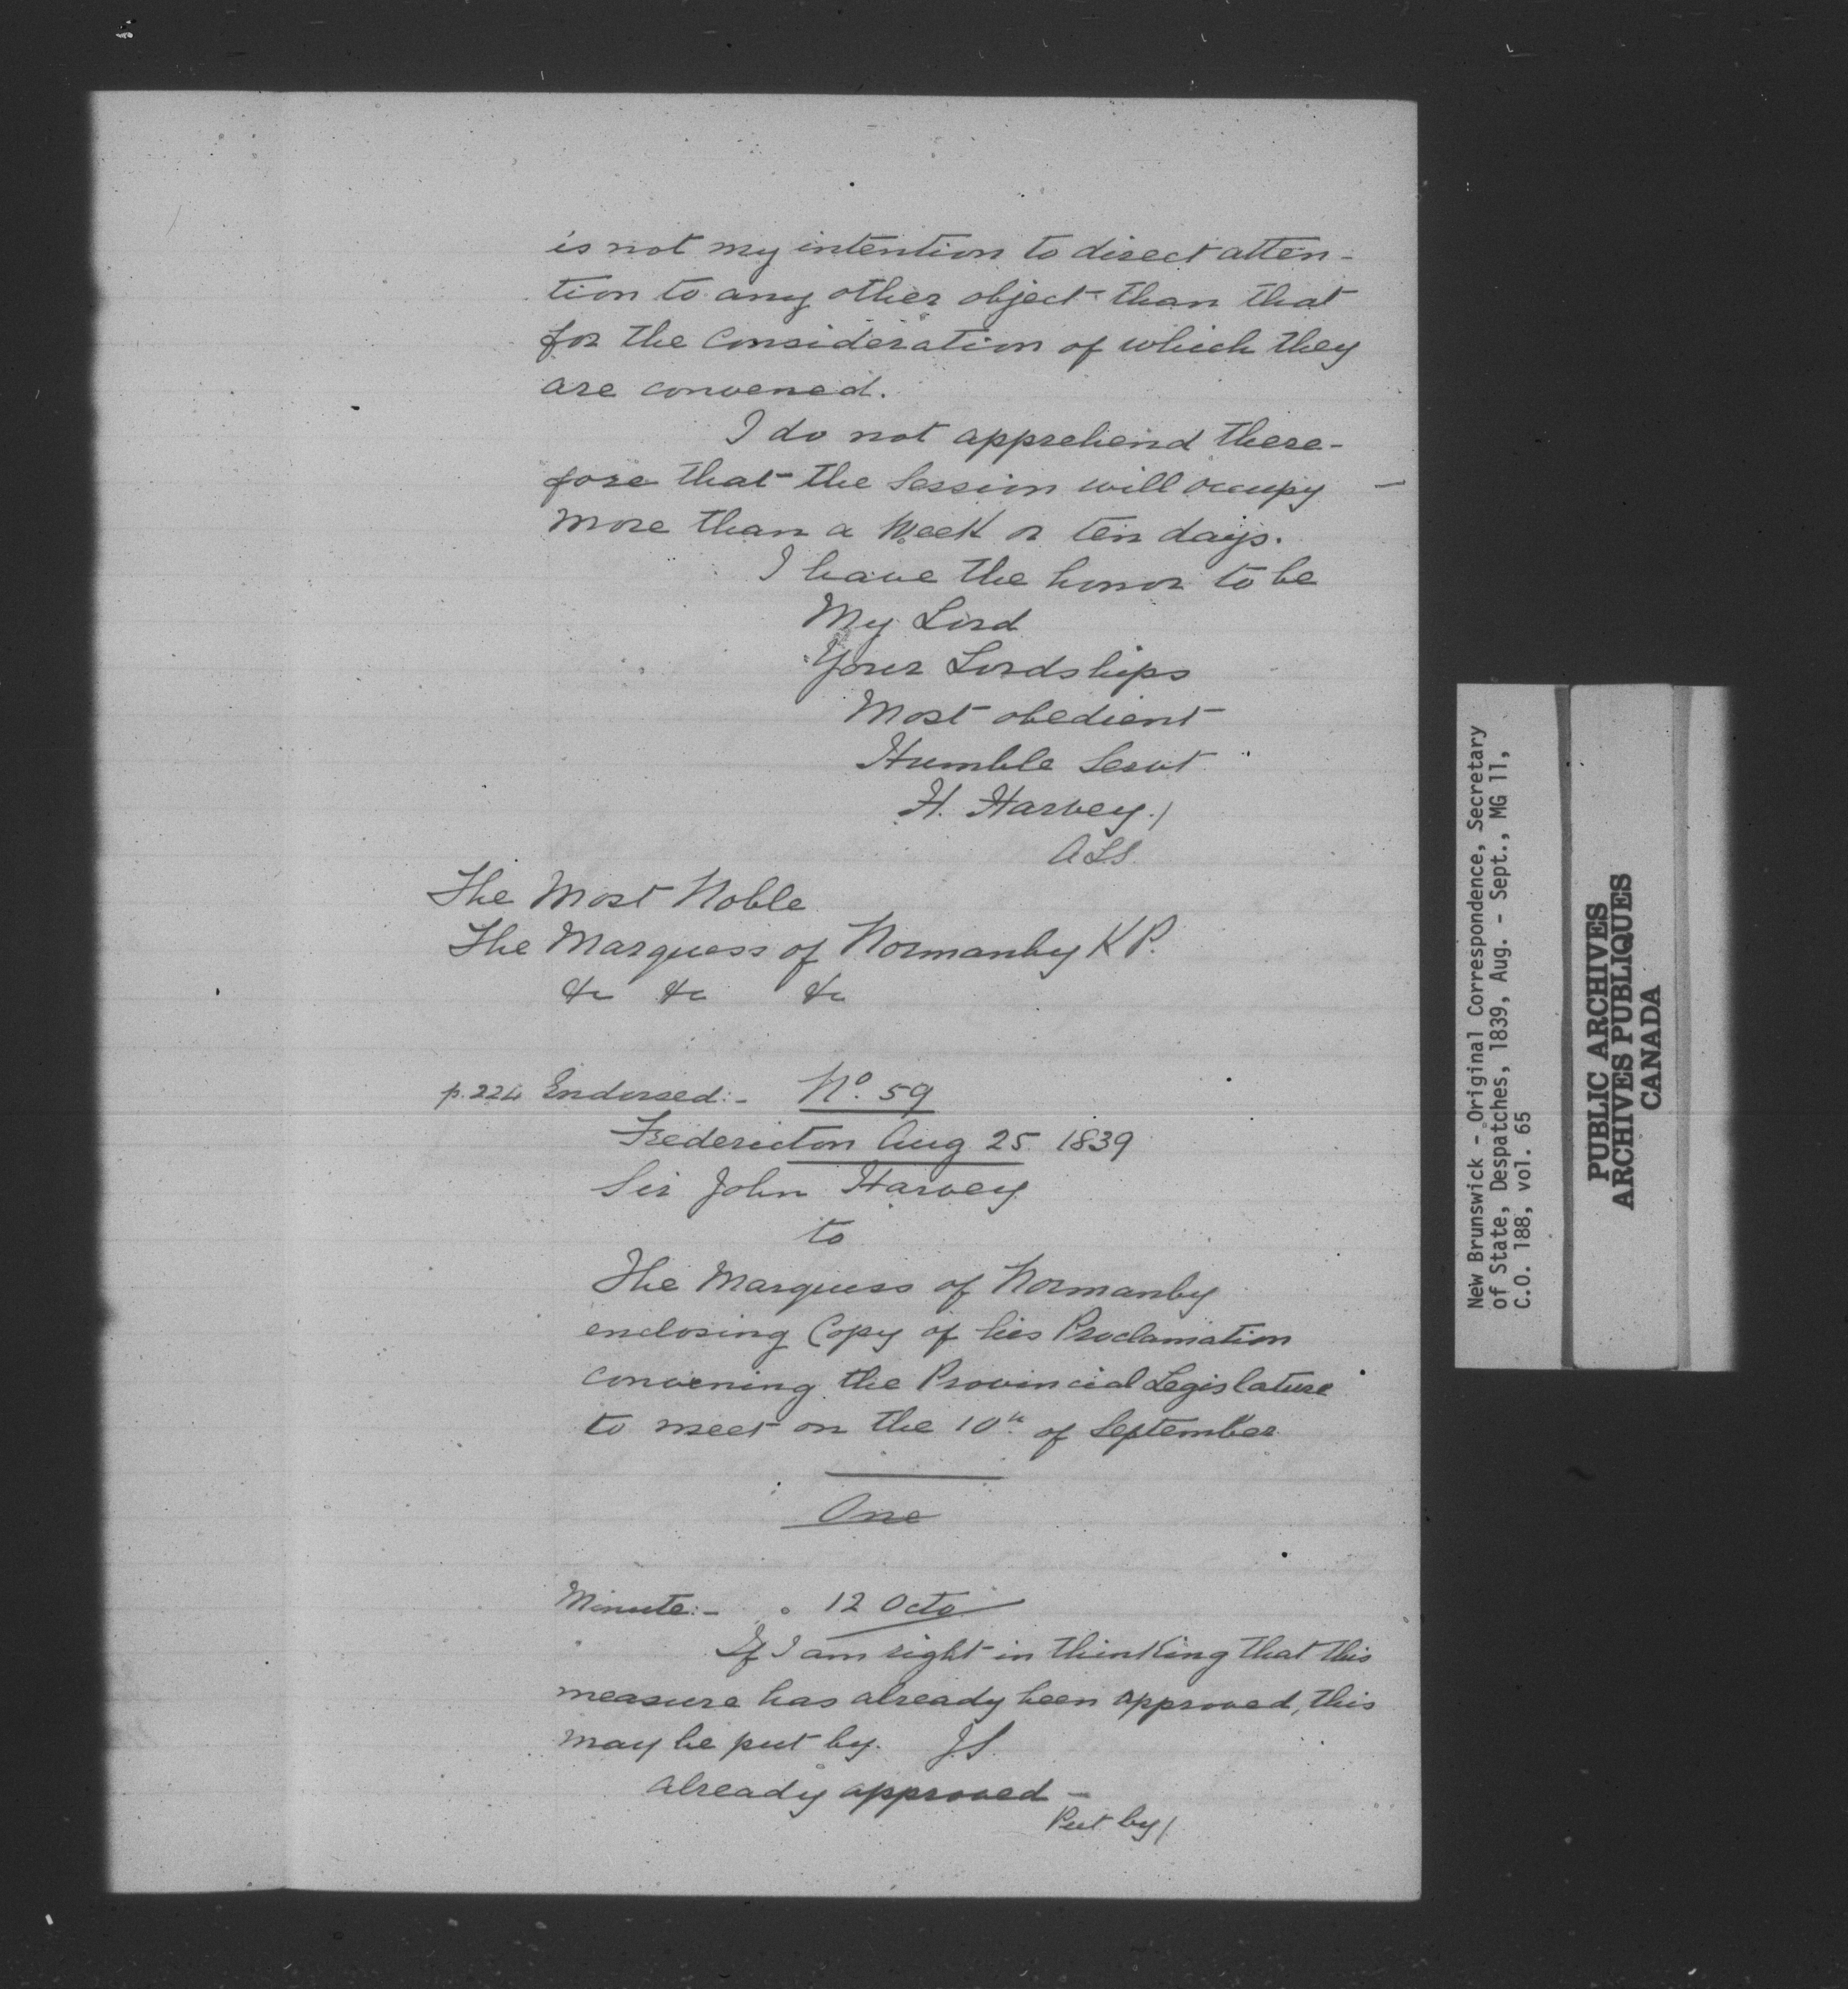 is not my intention to direct atten-
tion to any other object than that
for the consideration of which they
are convened.
I do not apprehend there-
fore that the Session will occupy
more than a Week or ten days.
I have the honor to be
My Lord
Your Lordships
Most obedient
Humble Servt
H. Harvey /
ALS.
The Most Noble
The Marquess of Normanby K P.
&c &c &c
p. 224 Endorsed:- No. 59
Fredericton Aug 25. 1839
Sir John Harvey
to
The Marquess of Normanby
enclosing Copy of his Proclamation
convening the Provincial Legislature
to meet on the 10th of September
One
Minute:- 12 Octo
If I am right in thinking that this
measure has already been approved, this
may be put by. J.S.
already approved -
Put by /
New Brunswick - Original Correspondence, Secretary
of State, Despatches, 1839, Aug. - Sept., MG 11,
C.O. 188, vol. 65
PUBLIC ARCHIVES
ARCHIVES PUBLIQUES
CANADA